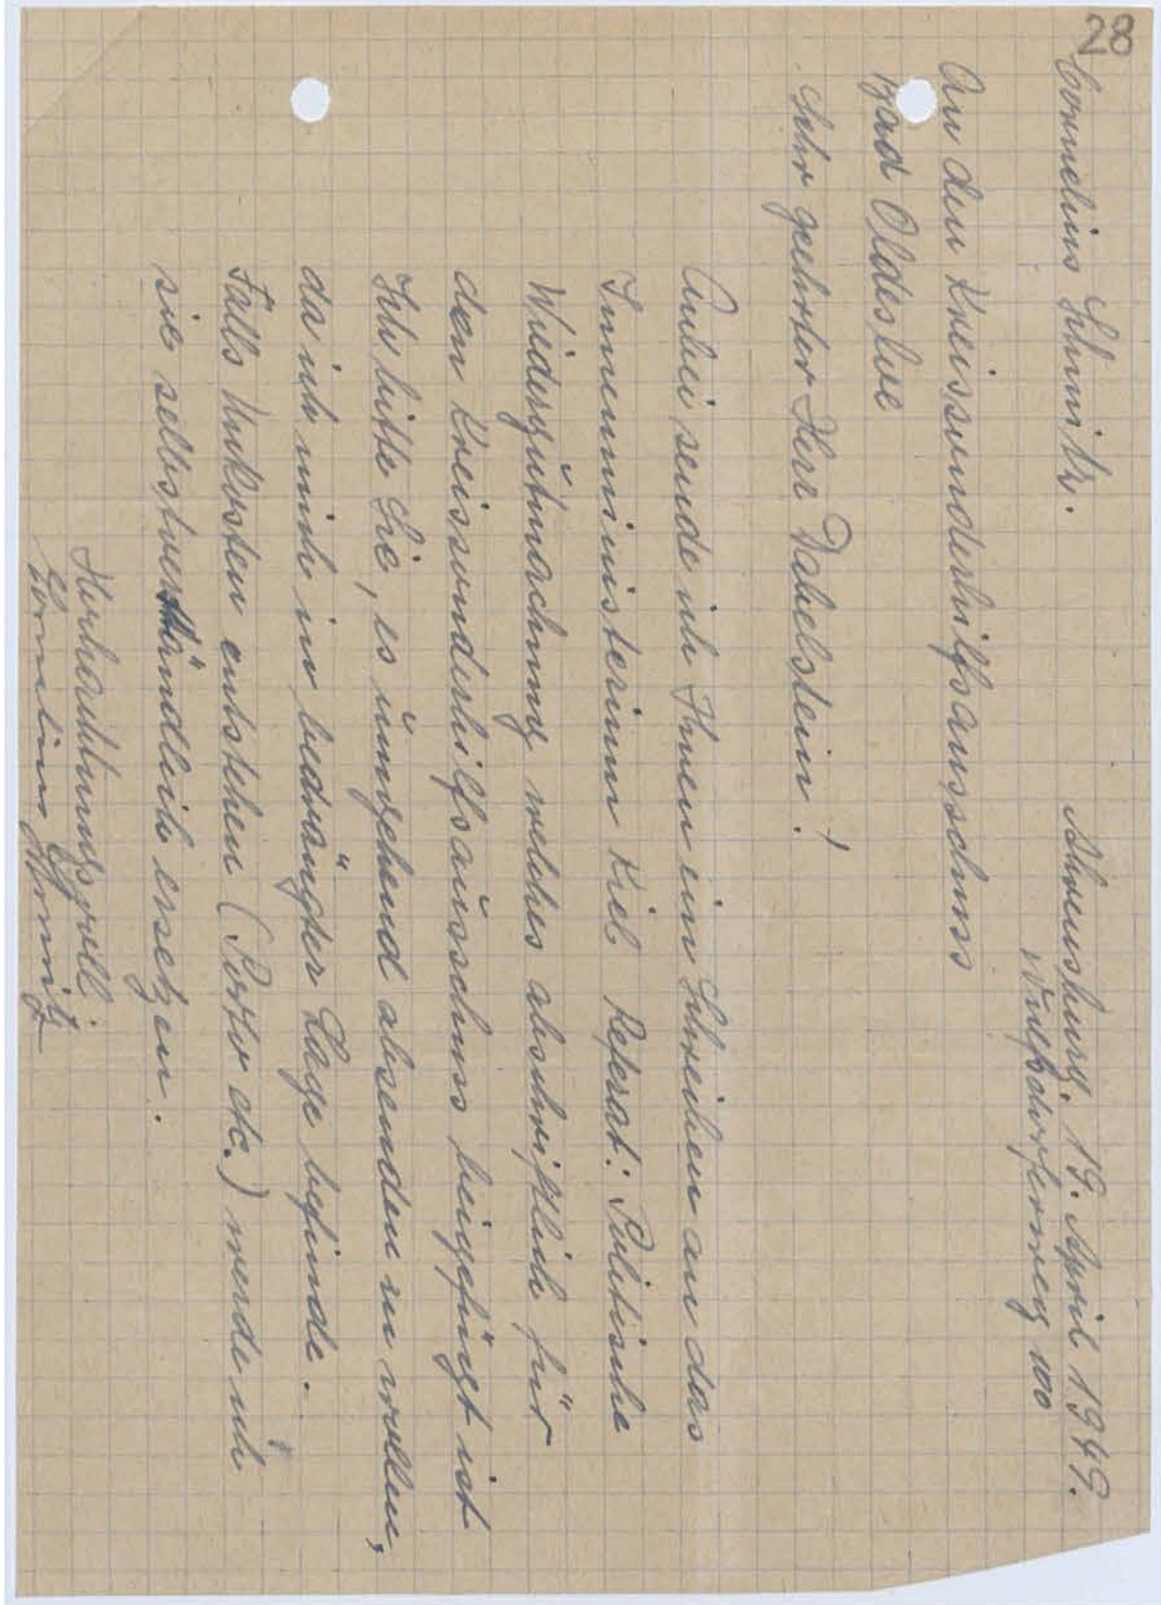 28
Cornelius Schmitz.
Ahrensburg, 19. April 1949.
Wulfsdorferweg 100
An den Kreissonderhilfsausschuss
Bad Oldesloe
Sehr geehrter Herr Dabelstein!
Anbei sende ich Ihnen ein Schreiben an das
Innenministerium Kiel Referat: Politische
Wiedergutmachung welches abschriftlich für
den Kreissonderhilfsausschuss beigefügt ist
Ich bitte Sie, es umgehend absenden zu wollen,
da ich mich in bedrängter Lage befinde.
Falls Unkosten entstehen (Porto etc.) werde ich
sie selbstverständlich ersetzen.
Hochachtungsvoll
Cornelius Schmitz